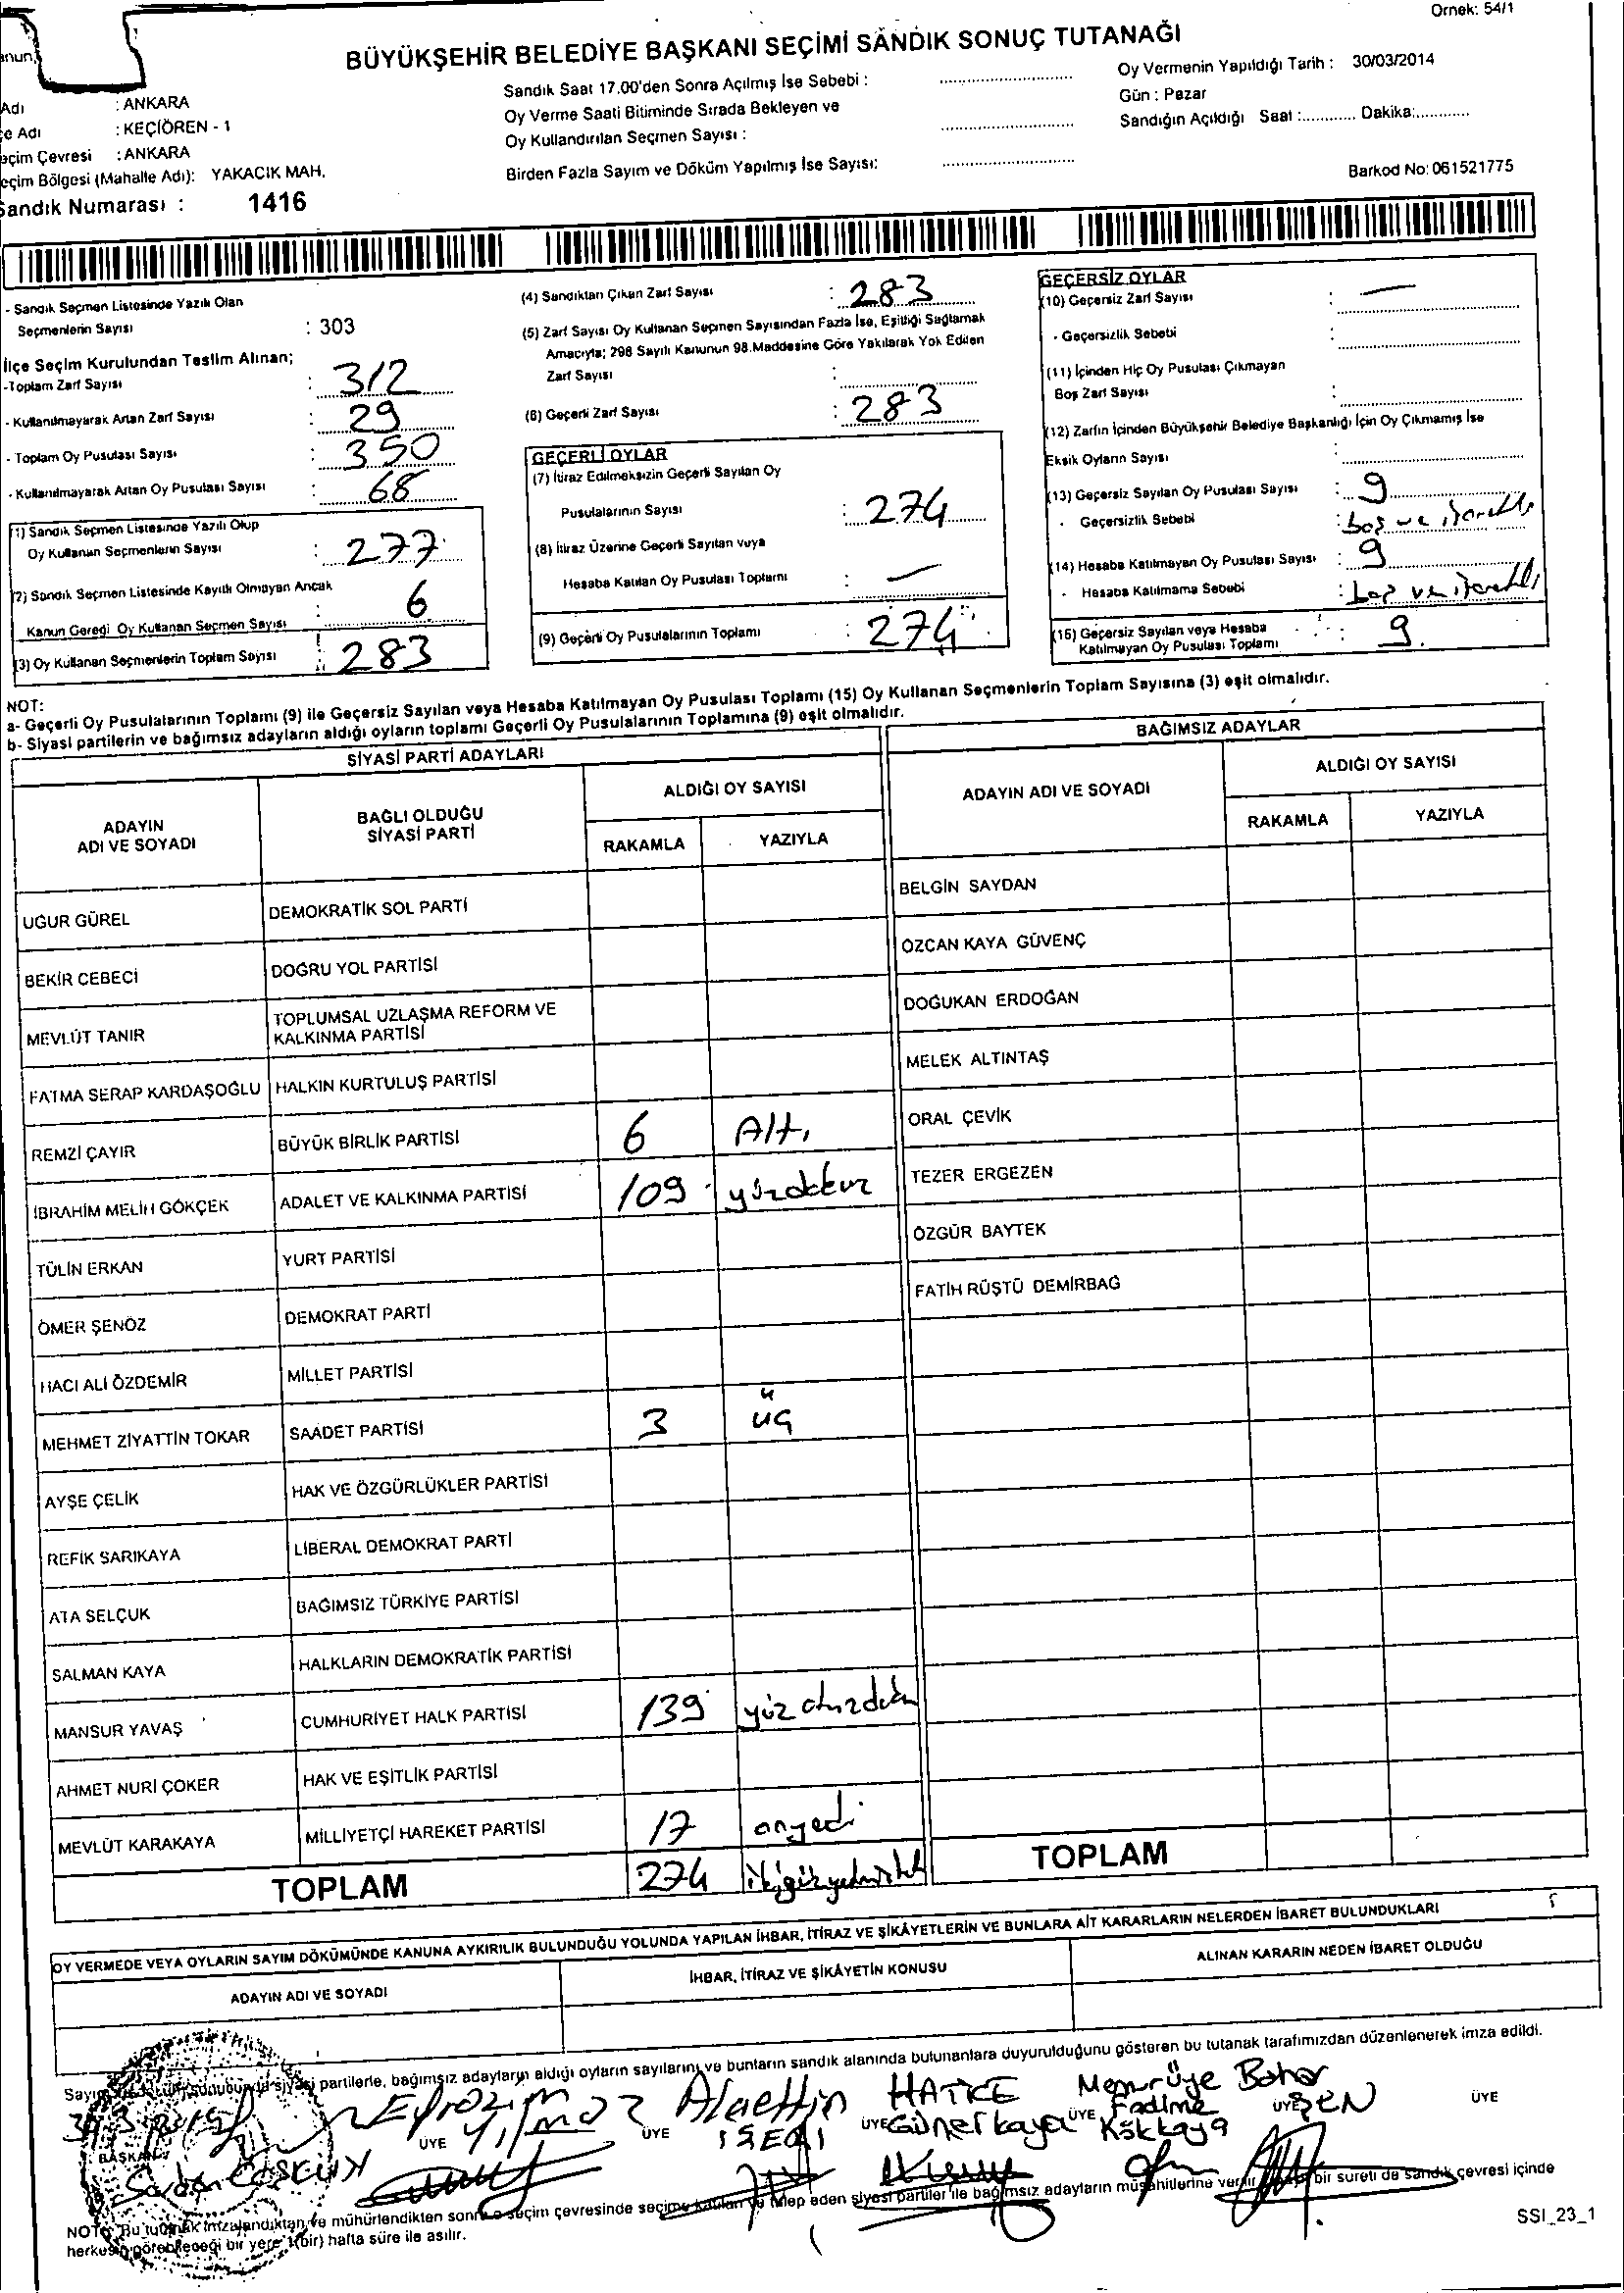 Örnek: 54/1
BÜYÜKŞEHİR BELEDİYE BAŞKANI SEÇİMİ SANDIK SONUÇ TUTANAĞI
Adı : ANKARA
çe Adı : KEÇİÖREN - 1
eçim Çevresi : ANKARA
eçim Bölgesi (Mahalle Adı): YAKACIK MAH.
Sandık Numarası : 1416
Sandık Saat 17.00'den Sonra Açılmış İse Sebebi :
Oy Verme Saati Bitiminde Sırada Bekleyen ve
Oy Kullandırılan Seçmen Sayısı :
Birden Fazla Sayım ve Döküm Yapılmış İse Sayısı:
Oy Vermenin Yapıldığı Tarih : 30/03/2014
Gün : Pazar
Sandığın Açıldığı Saat :............ Dakika:............
Barkod No: 061521775
- Sandık Seçmen Listesinde Yazılı Olan
Seçmenlerin Sayısı : 303
İlçe Seçim Kurulundan Teslim Alınan;
-Toplam Zarf Sayısı : 312
- Kullanılmayarak Artan Zarf Sayısı : 29
- Toplam Oy Pusulası Sayısı : 350
- Kullanılmayarak Artan Oy Pusulası Sayısı : 68
(1) Sandık Seçmen Listesinde Yazılı Olup
Oy Kullanan Seçmenlerin Sayısı : 277
(2) Sandık Seçmen Listesinde Kayıtlı Olmayan Ancak
Kanun Gereği Oy Kullanan Seçmen Sayısı : 6
(3) Oy Kullanan Seçmenlerin Toplam Sayısı : 283
(4) Sandıktan Çıkan Zarf Sayısı : 283
(5) Zarf Sayısı Oy Kullanan Seçmen Sayısından Fazla İse, Eşitliği Sağlamak
Amacıyla; 298 Sayılı Kanunun 98.Maddesine Göre Yakılarak Yok Edilen
Zarf Sayısı :
(6) Geçerli Zarf Sayısı : 283
GEÇERLİ OYLAR
(7) İtiraz Edilmeksizin Geçerli Sayılan Oy
Pusulalarının Sayısı : 274
(8) İtiraz Üzerine Geçerli Sayılan veya
Hesaba Katılan Oy Pusulası Toplamı : —
(9) Geçerli Oy Pusulalarının Toplamı : 274
GEÇERSİZ OYLAR
(10) Geçersiz Zarf Sayısı : —
- Geçersizlik Sebebi :
(11) İçinden Hiç Oy Pusulası Çıkmayan
Boş Zarf Sayısı :
(12) Zarfın İçinden Büyükşehir Belediye Başkanlığı İçin Oy Çıkmamış İse
Eksik Oyların Sayısı :
(13) Geçersiz Sayılan Oy Pusulası Sayısı : 9
- Geçersizlik Sebebi : boş ve işaretli
(14) Hesaba Katılmayan Oy Pusulası Sayısı : 9
- Hesaba Katılmama Sebebi : boş ve işaretli
(15) Geçersiz Sayılan veya Hesaba
Katılmayan Oy Pusulası Toplamı : 9
NOT:
a- Geçerli Oy Pusulalarının Toplamı (9) ile Geçersiz Sayılan veya Hesaba Katılmayan Oy Pusulası Toplamı (15) Oy Kullanan Seçmenlerin Toplam Sayısına (3) eşit olmalıdır.
b- Siyasi partilerin ve bağımsız adayların aldığı oyların toplamı Geçerli Oy Pusulalarının Toplamına (9) eşit olmalıdır.
SİYASİ PARTİ ADAYLARI
ADAYIN ADI VE SOYADI
BAĞLI OLDUĞU SİYASİ PARTİ
ALDIĞI OY SAYISI
RAKAMLA YAZIYLA
UĞUR GÜREL DEMOKRATİK SOL PARTİ
BEKİR CEBECİ DOĞRU YOL PARTİSİ
MEVLÜT TANIR TOPLUMSAL UZLAŞMA REFORM VE
KALKINMA PARTİSİ
FATMA SERAP KARDAŞOĞLU HALKIN KURTULUŞ PARTİSİ
REMZİ ÇAYIR BÜYÜK BİRLİK PARTİSİ 6 Altı
İBRAHİM MELİH GÖKÇEK ADALET VE KALKINMA PARTİSİ 109 yüzdokuz
TÜLİN ERKAN YURT PARTİSİ
ÖMER ŞENÖZ DEMOKRAT PARTİ
HACI ALİ ÖZDEMİR MİLLET PARTİSİ
MEHMET ZİYATTİN TOKAR SAADET PARTİSİ 3 üç
AYŞE ÇELİK HAK VE ÖZGÜRLÜKLER PARTİSİ
REFİK SARIKAYA LİBERAL DEMOKRAT PARTİ
ATA SELÇUK BAĞIMSIZ TÜRKİYE PARTİSİ
SALMAN KAYA HALKLARIN DEMOKRATİK PARTİSİ
MANSUR YAVAŞ CUMHURİYET HALK PARTİSİ 139 yüz otuzdokuz
AHMET NURİ ÇOKER HAK VE EŞİTLİK PARTİSİ
MEVLÜT KARAKAYA MİLLİYETÇİ HAREKET PARTİSİ 17 onyedi
TOPLAM 274 ikiyüzyetmişdört
BAĞIMSIZ ADAYLAR
ADAYIN ADI VE SOYADI
ALDIĞI OY SAYISI
RAKAMLA YAZIYLA
BELGİN SAYDAN
ÖZCAN KAYA GÜVENÇ
DOĞUKAN ERDOĞAN
MELEK ALTINTAŞ
ORAL ÇEVİK
TEZER ERGEZEN
ÖZGÜR BAYTEK
FATİH RÜŞTÜ DEMİRBAĞ
TOPLAM
OY VERMEDE VEYA OYLARIN SAYIM DÖKÜMÜNDE KANUNA AYKIRILIK BULUNDUĞU YOLUNDA YAPILAN İHBAR, İTİRAZ VE ŞİKÂYETLERİN VE BUNLARA AİT KARARLARIN NELERDEN İBARET BULUNDUKLARI
ADAYIN ADI VE SOYADI İHBAR, İTİRAZ VE ŞİKÂYETİN KONUSU ALINAN KARARIN NEDEN İBARET OLDUĞU
siyasi partilerle, bağımsız adayların aldığı oyların sayılarını ve bunların sandık alanında bulunanlara duyurulduğunu gösteren bu tutanak tarafımızdan düzenlenerek imza edildi.
Yılmaz Alaettin HATİCE Memrüye Bahar
Günerkaya Fadime ŞEN
Kökkaya
BAŞKAN ÜYE ÜYE ÜYE ÜYE ÜYE ÜYE
NOT: Bu tutanak imzalandıktan ve mühürlendikten sonra o seçim çevresinde seçime katılan ve talep eden siyasi partiler ile bağımsız adayların müşahitlerine verilir bir sureti de sandık çevresi içinde
herkesin görebileceği bir yere 1(bir) hafta süre ile asılır.
SSI_23_1